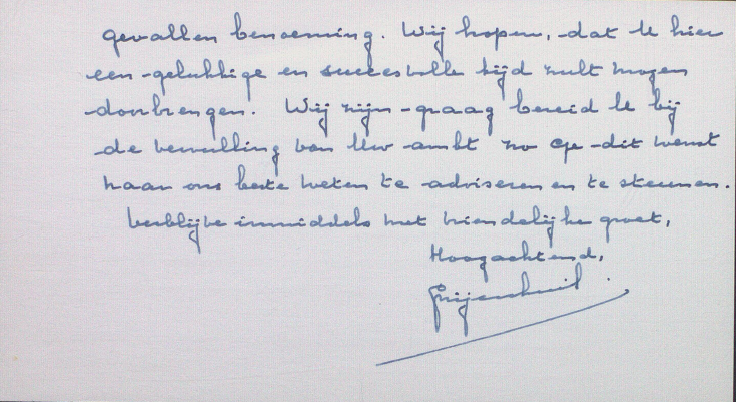 gevallen benoeming. Wij hopen, dat U hier
een gelukkige en succesvolle tijd zult mogen
doorbrengen. Wij zijn graag bereid U bij
de vervulling van Uw ambt zo op dit wenst
naar ons beste weten te adviseren en te steunen.
Verblijve inmiddels met vriendelijke groet,
Hoogachtend,